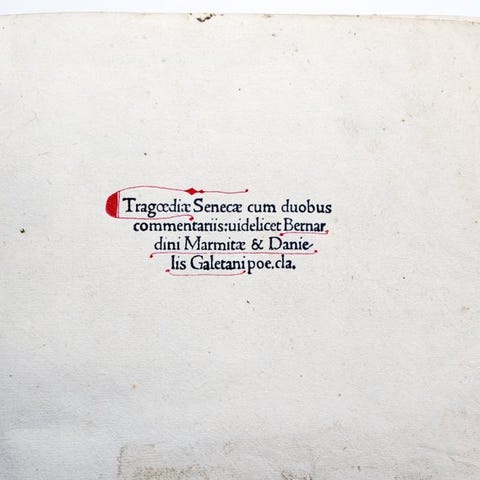 Tragœdiæ Senecæ cum duobus
commentariis:uidelicet Bernar
dini Marmitæ & Danie
lis Galetani poe.cla.